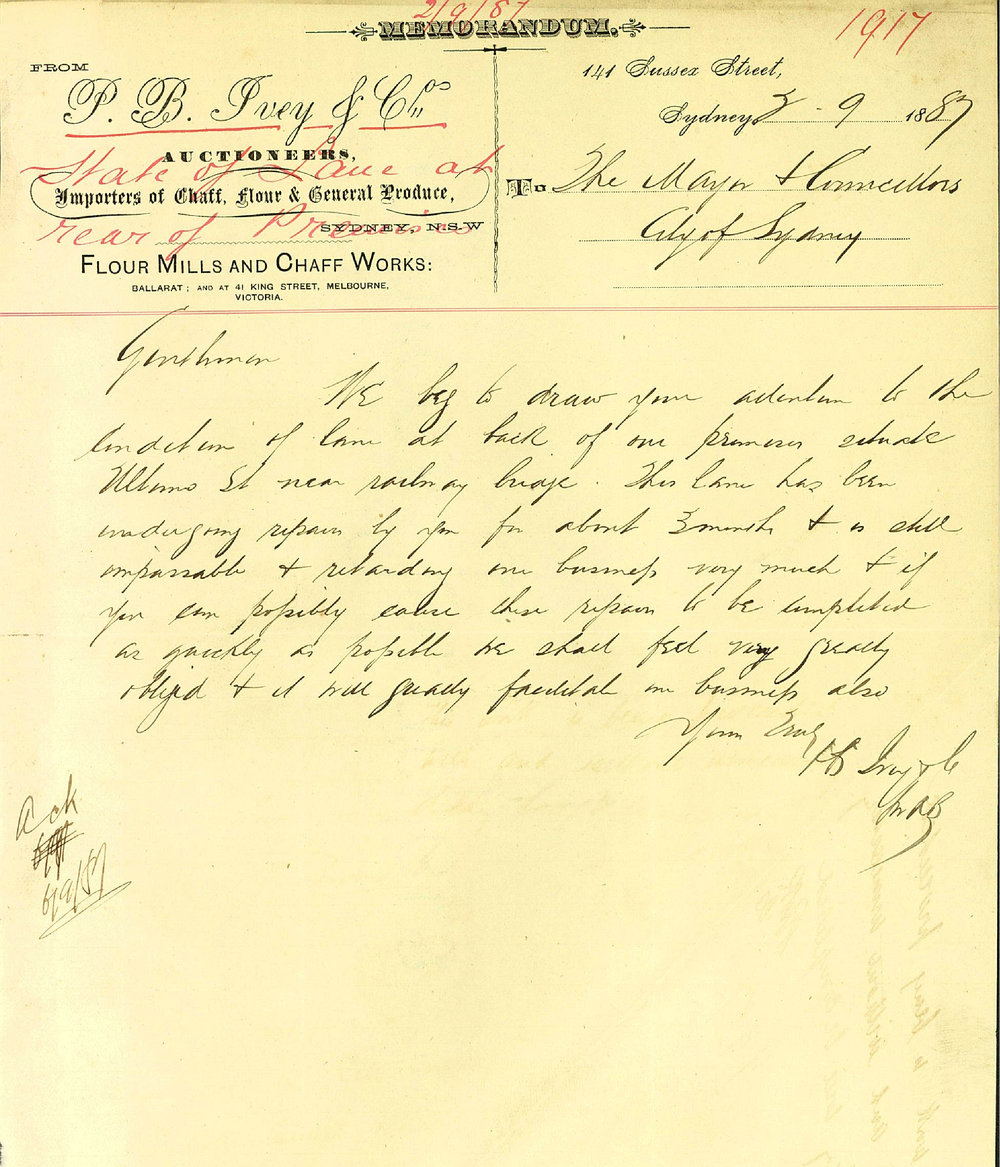 2/9/87
MEMORANDUM.
1917
FROM
P. B. Ivey & Co's
AUCTIONEERS,
State of Lane at
Importers of Chaff, Flour & General Produce,
rear of Premises
SYDNEY, N.S.W
FLOUR MILLS AND CHAFF WORKS:
BALLARAT; AND AT 41 KING STREET, MELBOURNE,
VICTORIA.
141 Sussex Street,
Sydney 2 - 9 1887
To The Mayor & Councellors
City of Sydney
Gentlemen
We beg to draw your attention to the
condition of lane at back of our premises situate
Ultimo St near railway bridge. This lane has been
undergoing repairs by you for about 3 months & is still
impassable & retarding our business very much & if
you can possibly cause these repairs to be completed
as quickly as possible we shall feel very greatly
obliged & it will greatly facilitate our business also
Yours Truly
P B Ivey & Co
Ack
6/9/87